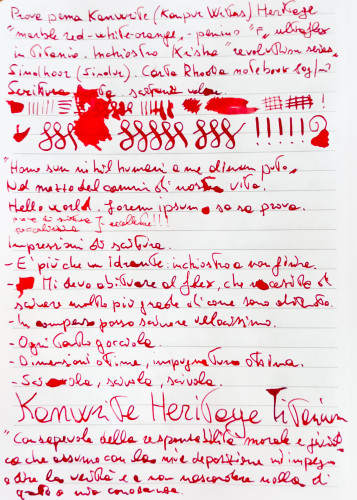 Prova penna Kanwrite (Kanpur Writers) Heritage
"marble red-white-orange", pennino "F" ultraflex
in titanio. Inchiostro "Krishna" "revolution series"
Sindhoor (Sindur). Carta Rhodia notebook
Scrittura
"Homo sum nihil humani a me alienum puto"
Nel mezzo del cammin di nostra vita.
Hello world. Lorem ipsum. sa sa prova.
prova di scrittura
eccellente!!!
Impressioni di scrittura.
- E' più che un idrante. inchiostro a non finire.
- Mi devo abituare al flex, che necessita di
scrivere molto più grande di come sono abituato.
- In compenso posso scrivere velocissimo.
- Ogni tanto gocciola.
- Dimensioni ottime, impugnatura ottima.
- Scivola, scivola, scivola.
Kanwrite Heritage Titanium
"Consapevole della responsabilità morale e giuridi
ca che assumo con la mia deposizione mi impegno
a dire la verità e a non nascondere nulla di
quanto a mia conoscenza.